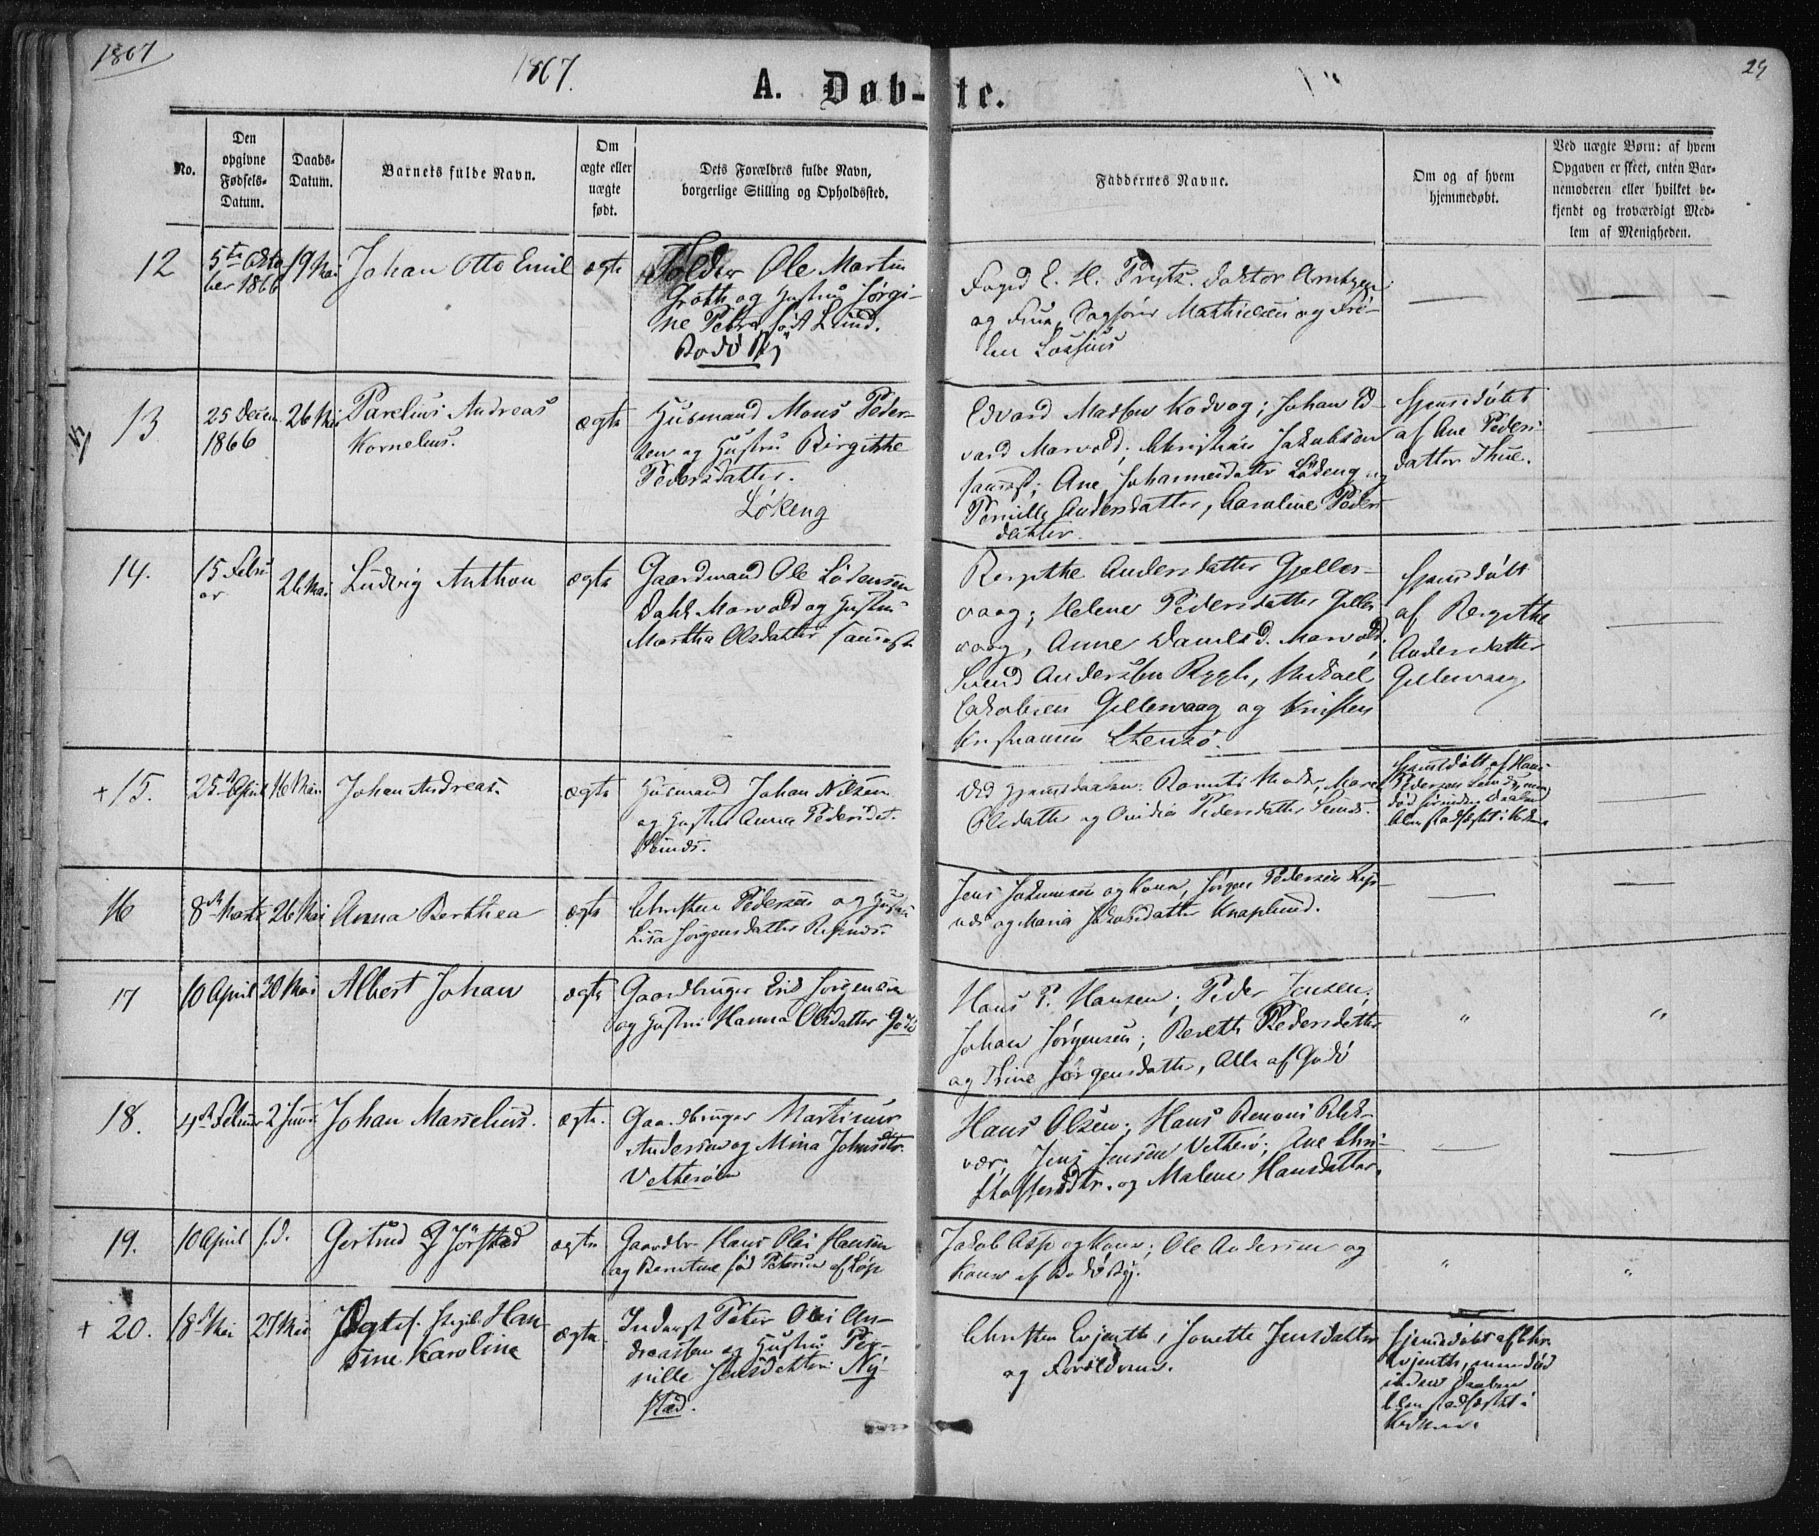 1867
1867.
A. Døb-te.
29
No.
Den
opgivne
Fødsels-
Datum.
Daabs-
Datum.
Barnets fulde Navn.
Om
ægte eller
uægte
født.
Dets Forældres fulde Navn,
borgerlige Stilling og Opholdssted.
Faddernes Navne.
Om og af hvem
hjemmedøbt.
Ved uægte Børn: af hvem
Opgaven er skeet, enten Bar-
nemoderen eller hvilket be-
kjendt og troværdigt Med-
lem af Menigheden.
12
5te Octo
ber 1866
19 Mai
Johan Otto Emil
ægte
Tolder Ole Martin
Groth og Hustru Jørgi-
ne Petra født Lund.
Bodø By
Foged E. H. Trytz. Doktor
og Frue, Sagfører Mathiesen og Frø-
ken
13
25 Decem
1866
26 Mai
Parelius Andreas
Kornelius.
ægte
Husmand Mons Peder-
sen og Hustru Birgitthe
Pedersdatter.
Løkeng
Edvard Madsen Kodvog; Johan Ed-
vard Marvold; Christian Jakobsen
samest; Ane Johannesdatter Løkeng og
Pernille Andersdatter, Caroline Peders
datter.
hjemmedøbt
af Ane Peders
datter Thue.
14.
15 Febru
ar
26 Mai
Ludvig Anthon
ægte
Gaardmand Ole
Dahl Marvold og Hustru
Martha Olsdatter samest
Bergithe Andersdatter Gjelles-
vaag; Helene Pedersdatter Gilles
vaag, Anne Danielsd. Marvold,
Svend Andersen Mikael
Jakobsen Gillesvaag og Kristen
Kristiansen
hjemmedøbt
af Bergithe
Andersdatter
Gillesvaag
+ 15.
25 April
16 Mai
Johan Andreas.
ægte
Husmand Johan Nilsen
og Hustru Anna Pedersdat.
Seines.
Ved hjemmedaaben: Barnets Moder, Maren
Olsdatter og Pedersdatter Seines.
hjemmedøbt af Hans
Pedersen men
død forinden Daaben
blev stadfæstet i Kirken
16
8de Marts
26 Mai
Anna Berthea
ægte
Christen Pedersen og Hustru
Lisa Jørgensdatter
Jens og Kone, Jørgen Pedersen
og Maria Jakobsdatter Knaplund.
17
10 April
30 Mai
Albert Johan
ægte
Gaardbruger Erik Jørgensen
og Hustru Hanna Olsdatter Godø
Hans P. Hansen; Peder Jensen;
Johan Jørgensen; Bereth Pedersdatter
og Trine Jørgensdatter, Alle af Godø
"
"
18.
4de Februar
2 Juni
Johan Marselius.
ægte.
Gaardbruger Martinus
Andersen og Mina Johnsdtr.
Vetherøen
Hans Olsen; Hans
Jens Jensen Vetherø; Ane Chri-
stoffersdtr. og Malene Hansdatter.
19.
10 April
s. d.
Gertrud Jörstad
ægte
Gaardbr. Hans Olai Hansen
og Berntine fød Petersen af Løp
Jakob Asp og Kone; Ole Andersen og
Kone af Bodø By.
"
"
+ 20.
18de Mai
27 Mai
Han-
sine Karolina
ægte
Inderst Peter Olai An-
dreassen og Hustru Per-
nille Jensdatter Ny-
stad.
Christen Evjenth, Jonette Jensdatter
og Forældrene.
hjemmedøbt af Chr.
Evjenth, men død
inden Daaben
blev stadfæstet i
Kirken.